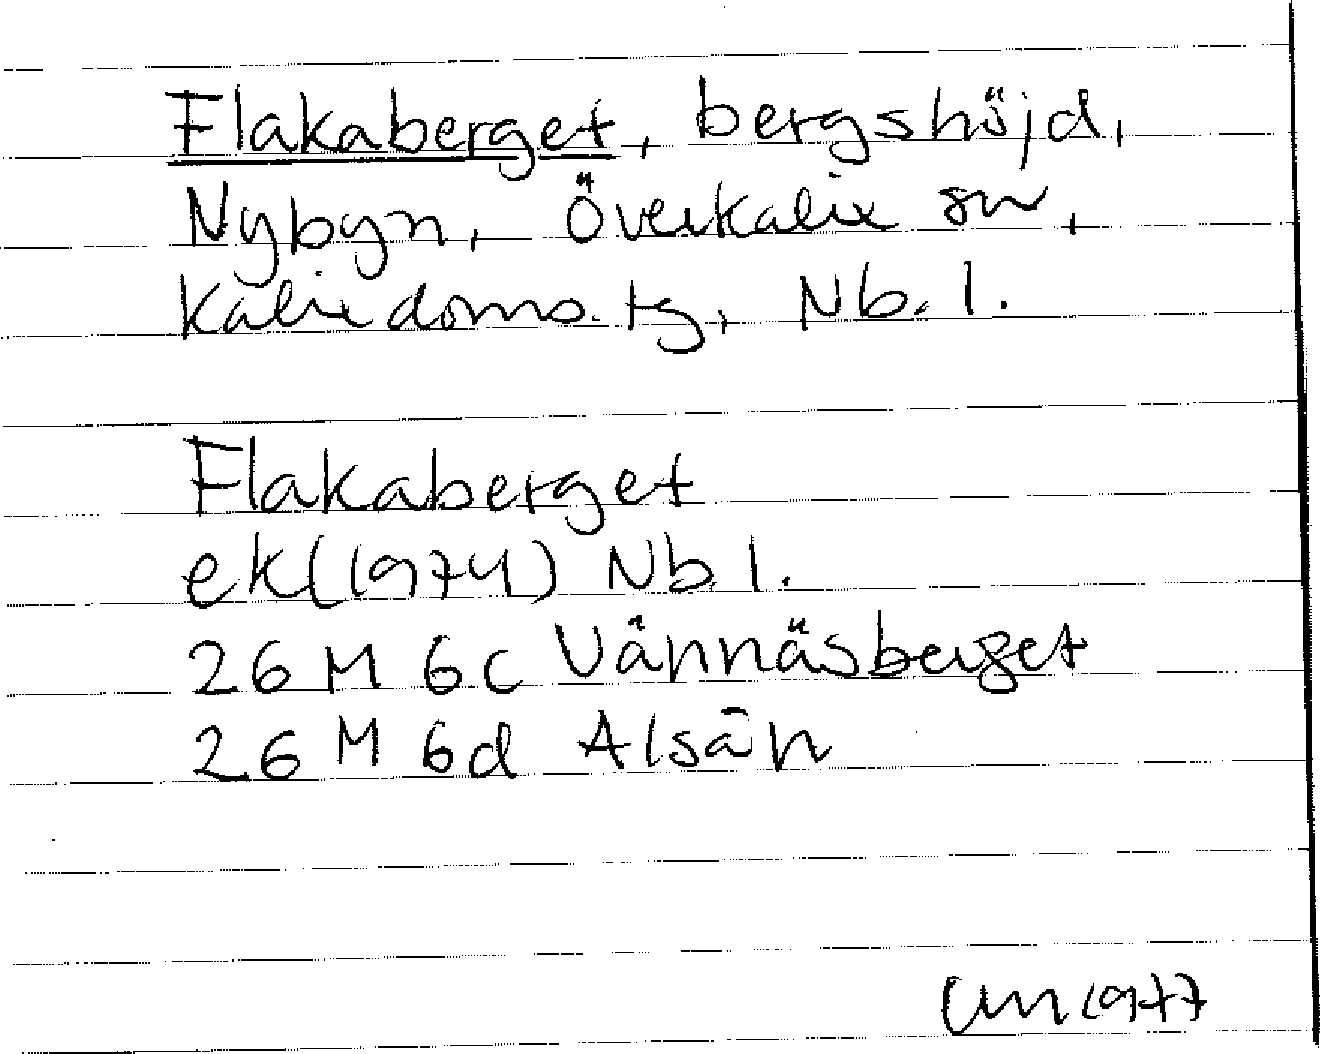 Flakaberget, bergshöjd,
Nybyn, Överkalix sn,
Kalix doms. tg, Nb. l.
Flakaberget
ek (1974) Nb l.
26 M 6c Vännäsberget
26 M 6d Alsån
1977